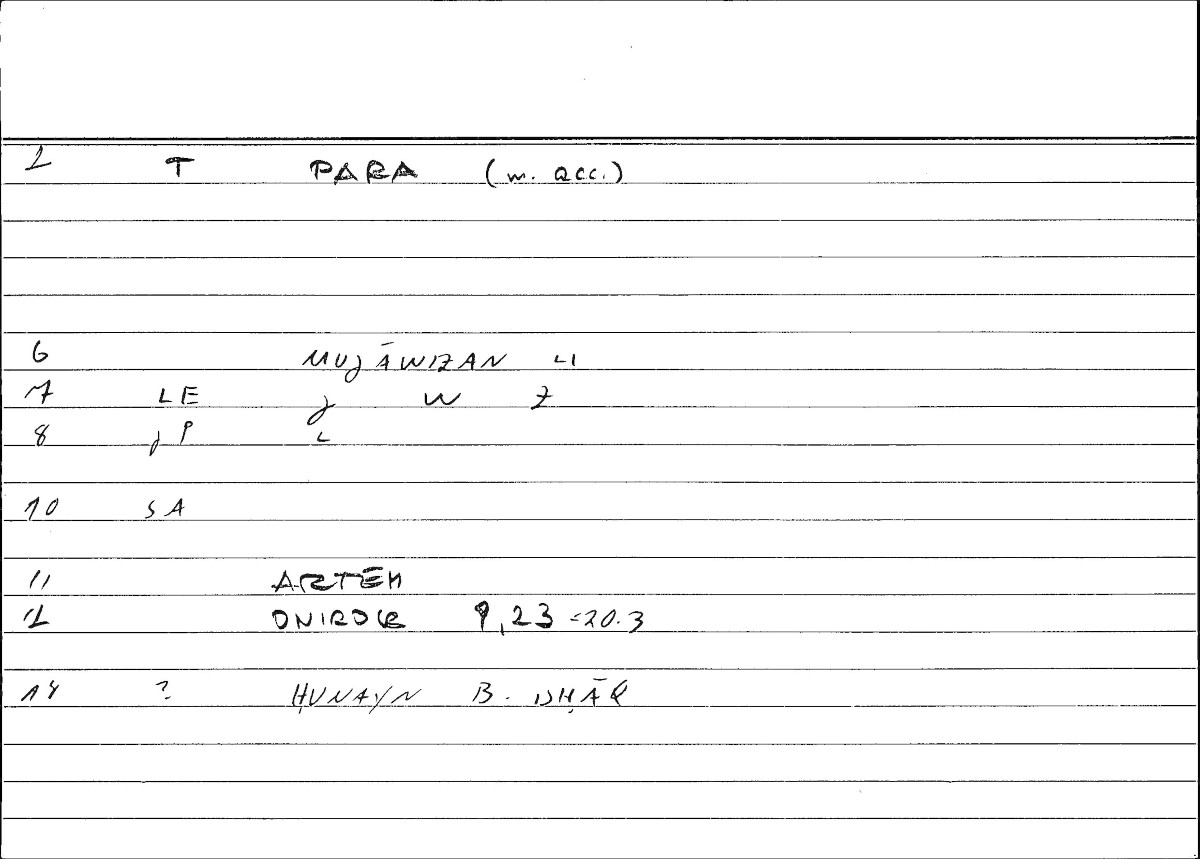 1 T PARA (m. acc.)
6 MUJĀWIZAN LI
7 LE J W Z
8 JP L
10 SA
11 ARTEM
12 ONIROCR 9,23 =20.3
14 ? ḤUNAYN B. ISḤĀQ